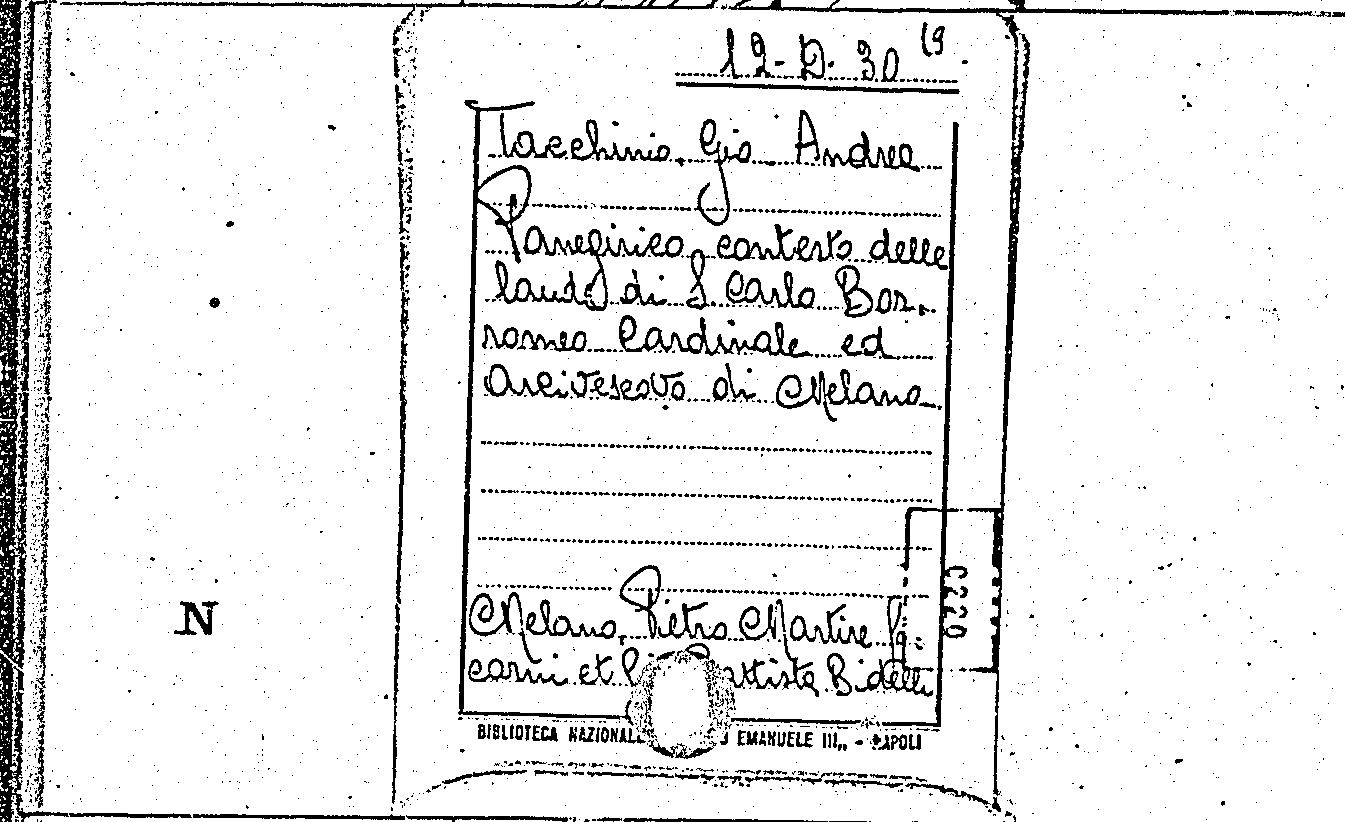 12-D-30 19.
Tacchinio, Gio Andrea
Panegirico contesto delle
laudi di S. Carlo Bor-
romeo Cardinale ed
Arcivescovo di Melano
Melano, Pietro Martire Lo-
carni et Battista Bidelli
BIBLIOTECA NAZIONALE EMANUELE III„ - NAPOLI
N